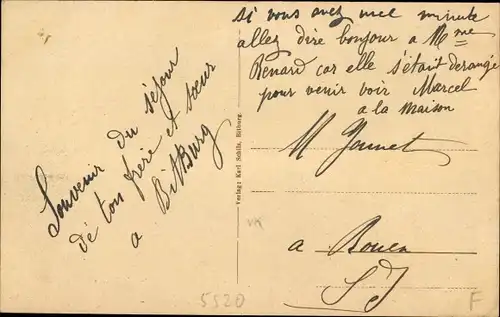 Souvenir du séjour
de ton frère et sœur
a Bitburg
Verlag: Karl Schils, Bitburg.
si vous avez une minute
allez dire bonjour a Mme
Renard car elle s'était derangé
pour venir voir Marcel
a la maison
M
a Rouen
S I
VK
5520
F